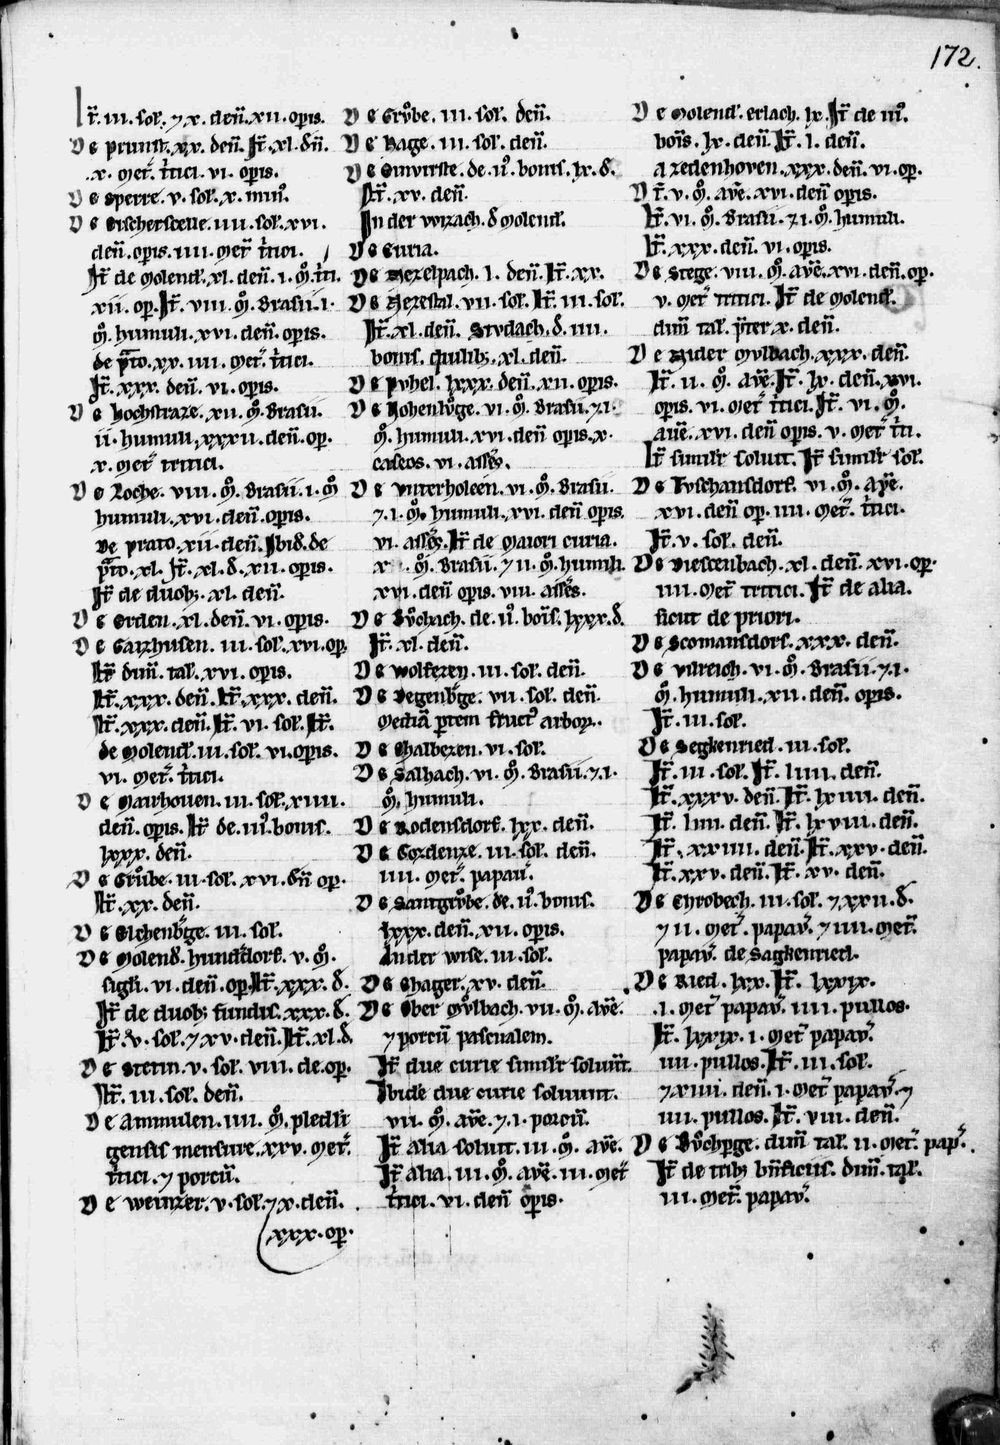 172.
It̃. III. sol. ⁊ X. deñ. XII. opis.
De prunst. XX. deñ. It̃. XL. dñ.
.X. met̃. tͥtici. VI. opis.
De Sperre. V. sol. X. minͦ.
De vischerstelle. IIII. sol. XVI.
deñ. opis. IIII. met̃ tͥtici.
It̃ de molend. XL. deñ. I. mͦ. tͥti.
XII. op. It̃. VIII. mͦ. Brasii. I.
mͦ. humuli. XVI. deñ. opis.
de p̃to. XX. IIII. met̃. tͥtici.
It̃. XXX. deñ. VI. opis.
De hochstraze. XII. mͦ. Brasii.
II. humuli. XXXII. deñ. op.
X. met̃ tritici.
De Loche. VIII. mͦ. Brasii. I. mͦ
humuli. XVI. deñ. opis.
De prato. XII. deñ. Ibid. de
p̃to. XL. It̃. XL. d. XII. opis.
It̃ de duobꝫ. XL. deñ.
De Orden. XL. deñ. VI. opis.
De Garzhusen. III. sol. XVI. op.
It̃ dim̃. tal. XVI. opis.
It̃. XXX. deñ. It̃. XXX. deñ.
It̃. XXX. deñ. It̃. VI. sol. It̃.
de molend. III. sol. VI. opis.
VI. met̃. tͥtici.
De Mairhouen. III. sol. XIIII.
deñ. opis. It̃ de. IIIͦ. bonis.
LXXX. deñ.
De Grůbe. III. sol. XVI. dñ op.
It̃. XX. deñ.
De Eichenb̃ge. III. sol.
De molend. hund̃dorf. V. mͦ.
sigli. VI. deñ. op. It̃. XXX. d.
It̃ de duobꝫ fundis. XXX. d.
It̃. V. sol. ⁊ XV. deñ. It̃. XL. d
De Stetin. V. sol. VIII. de. op.
It̃. III. sol. deñ.
De Ammulen. IIII. mͦ. pledli
gensis mensure. XXV. met̃.
tͥtici. ⁊ porcũ.
De Weinzer. V. sol. ⁊ X. deñ.
XXX. op.
De Grůbe. III. sol. deñ.
De Hage. III. sol. deñ.
De Einvirste. de. IIͦ. bonis. LX. d.
It̃. XV. deñ.
In der Virach. d molend.
De Curia.
De Hezelpach. L. deñ. It̃. XX.
De Herestal. VII. sol. It̃. III. sol.
It̃. XL. deñ. Studach. d. IIII.
bonis. quilibꝫ. XL. deñ.
De Pvhel. LXXX. deñ. XII. opis.
De Hohenlůge. VI. mͦ. Brasii. ⁊ I.
mͦ. humuli. XVI. deñ opis. X.
caseos. VI. asses.
De Vnterholcen. VI. mͦ. Brasii.
⁊ I. mͦ. humuli. XVI. deñ opis.
VI. asses. It̃ de maiori curia.
X . mͦ. Brasii. ⁊ II. mͦ. humuli.
XVI. deñ opis. VIII. asses.
De Bůchach. de. IIͦ. bois. LXXX. d.
It̃. XL. deñ.
De Wolferen. III. sol. deñ.
De Degenb̃ge. VII. sol. deñ.
mediã ptem fruct̃ arboꝝ.
De Chalberen. VI. sol.
De Salhach. VI. mͦ. Brasii. ⁊ I.
mͦ. humuli.
De Rodensdorf. LXX. deñ.
De Gozdenze. III. sol. deñ.
IIII. met̃. papau̾.
De Santgrůbe. de. IIͦ. bonis.
LXXX. deñ. XII. opis.
Ander wise. III. sol.
De Chager. XV. deñ.
De Ober Mvlbach. VII. mͦ. aṽe.
⁊ porcũ pascualem.
It̃ due curie similr̃ soluũt.
Ibidẽ due curie soluunt.
VII. mͦ. aṽe. ⁊ I. porcũ.
It̃ alia soluit. III. mͦ. aṽe.
It̃ alia. III. mͦ. aṽe. III. met̃
tͥtici. VI. deñ opis.
De Molend. erlach. LX. It̃ de IIIͦ.
bois. LX. deñ. It̃. L. deñ.
Azedenhoven. XXX. deñ. VI. op.
It̃. V. mͦ. aṽe. XVI. deñ opis.
It̃. VI. mͦ. Brasii. ⁊ I. mͦ. humuli.
It̃. XXX. deñ. VI. opis.
De Stege. VIII. mͦ. aṽe. XVI. deñ. op.
V. met̃ tritici. It̃ de molend.
dim̃ tal. p̃ter X. deñ.
De Nider Mvlbach. XXX. deñ.
It̃. II. mͦ. aṽe. It̃. LX. deñ. XVI.
opis. VI. met̃ tͥtici. It̃. VI. mͦ.
aṽe. XVI. deñ opis. V. met̃ tͥti.
It̃ similr̃ soluit. It̃ similr̃ sol.
De Tvschansdorf. VI. mͦ. aṽe.
XVI. deñ op. IIII. met̃. tͥtici.
It̃. V. sol. deñ.
De Viescenbach. XL. deñ. XVI. op.
IIII. met̃ tritici. It̃ de alia.
sicut de priori.
De Scomansdorf. XXX. deñ.
De Vlreich. VI. mͦ. Brasii. ⁊ I.
mͦ. humuli. XII. deñ. opis.
It̃. III. sol.
De Segkenried. III. sol.
It̃. III. sol. It̃. LIIII. deñ.
It̃. XXXV. deñ. It̃. LXIIII. deñ.
It̃. LIIII. deñ. It̃. LXVIII. deñ.
It̃. XXIIII. deñ. It̃. XXV. deñ.
It̃. XXV. deñ. It̃. XV. deñ.
De Chrobech. III. sol. ⁊ XXII. d.
⁊ II. met̃. papau̾. ⁊ IIII. met̃.
papau̾. de Sagkenried.
De Ried. LXX. It̃. LXXIX.
.I. met̃ papau̾. IIII. pullos.
It̃. LXXIX. I. met̃ papau̾.
IIII. pullos. It̃. III. sol.
⁊ XIIII. deñ. I. met̃ papau̾. ⁊
IIII. pullos. It̃. VIII. deñ.
De Bůchp̃ge. dim̃ tal. II. met̃. pap̾.
It̃ de tribꝫ bñficiis. dim̃. tal.
III. met̃. papau̾.